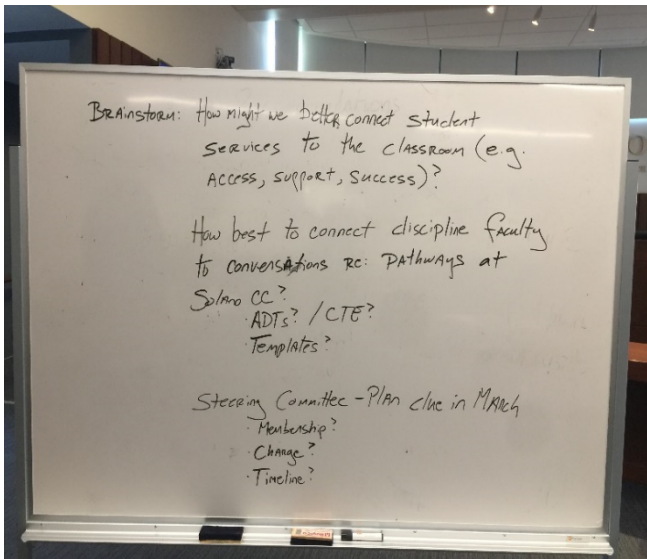 Brainstorm: How might we better connect student
services to the classroom (e.g.
access, support, success)?
How best to connect discipline faculty
to conversations re: pathways at
Solano CC?
· ADTs? / CTE?
· Templates?
Steering Committee - Plan due in March
· Membership?
· Change?
· Timeline?